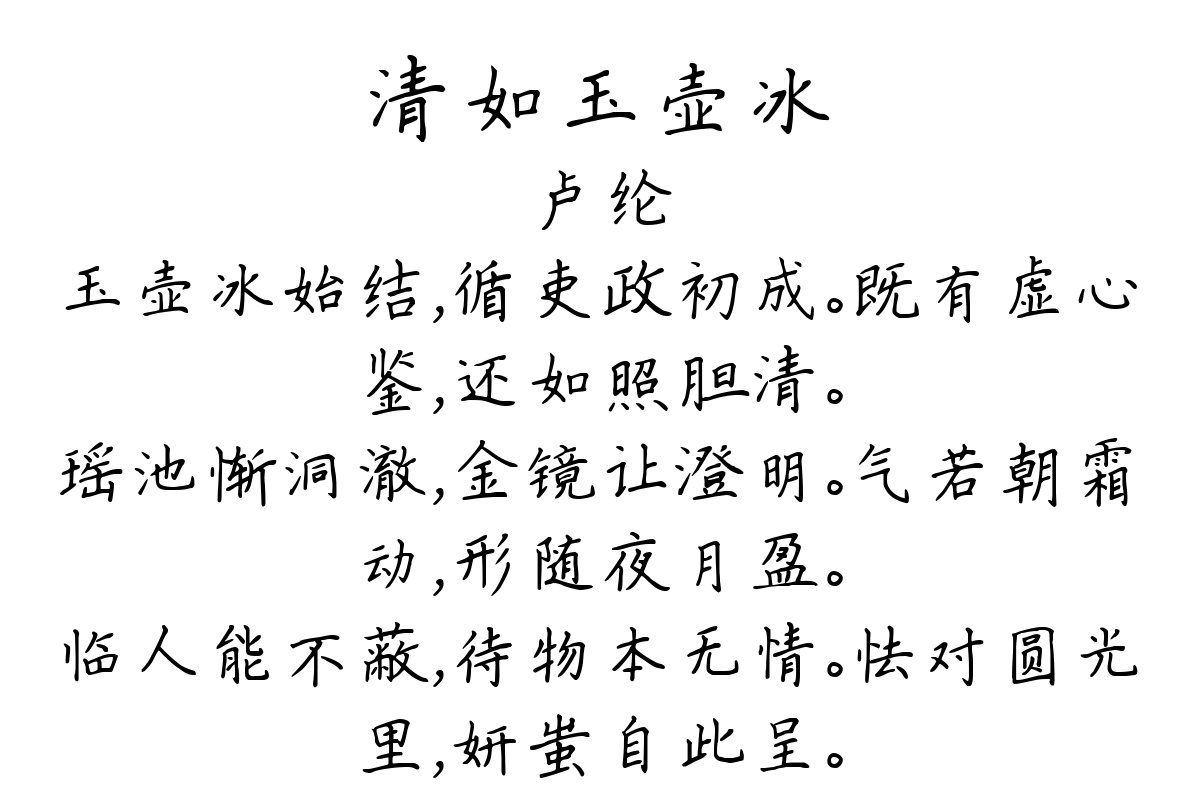 清如玉壶冰
卢纶
玉壶冰始结,循吏政初成。既有虚心
鉴,还如照胆清。
瑶池惭洞澈,金镜让澄明。气若朝霜
动,形随夜月盈。
临人能不蔽,待物本无情。怯对圆光
里,妍蚩自此呈。